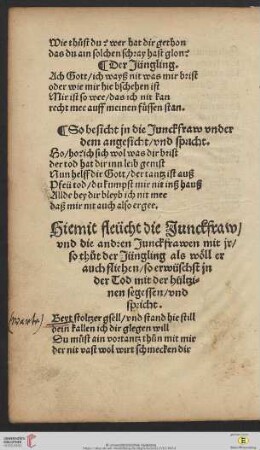 Wie thůst du? wer hat dir gethon
das du ain solchen schray hast glon?
¶ Der Jüngling.
Ach Gott/ich wayß nit was mir brist
oder wie mir hie bschehen ist
Mir ist so wee/das ich nit kan
recht mer auff meinen füssen stan.
¶ So besicht in die Junckfraw vnder
dem angesicht/vnd spricht.
Ho/ho/ich sich wol was dir brist
der tod hat dir inn leib genist
Nun helff dir Gott/der tantz ist auß
Pfeü tod/du kumpst mir nit inß hauß
Allde bey dir bleyb ich nit mee
daß mir nit auch also ergee.
Hiemit fleücht die Junckfraw/
vnd die andren Junckfrawen mit jr/
so thůt der Jüngling als wöll er
auch fliehen/so erwüschst jn
der Tod mit der hültzi-
nen segessen/vnd
spricht.
Beyt stoltzer gsell/vnd stand hie still
dein kallen ich dir glegen will
Du můst ain vortantz thůn mit mir
der nit vast wol wirt schmecken dir